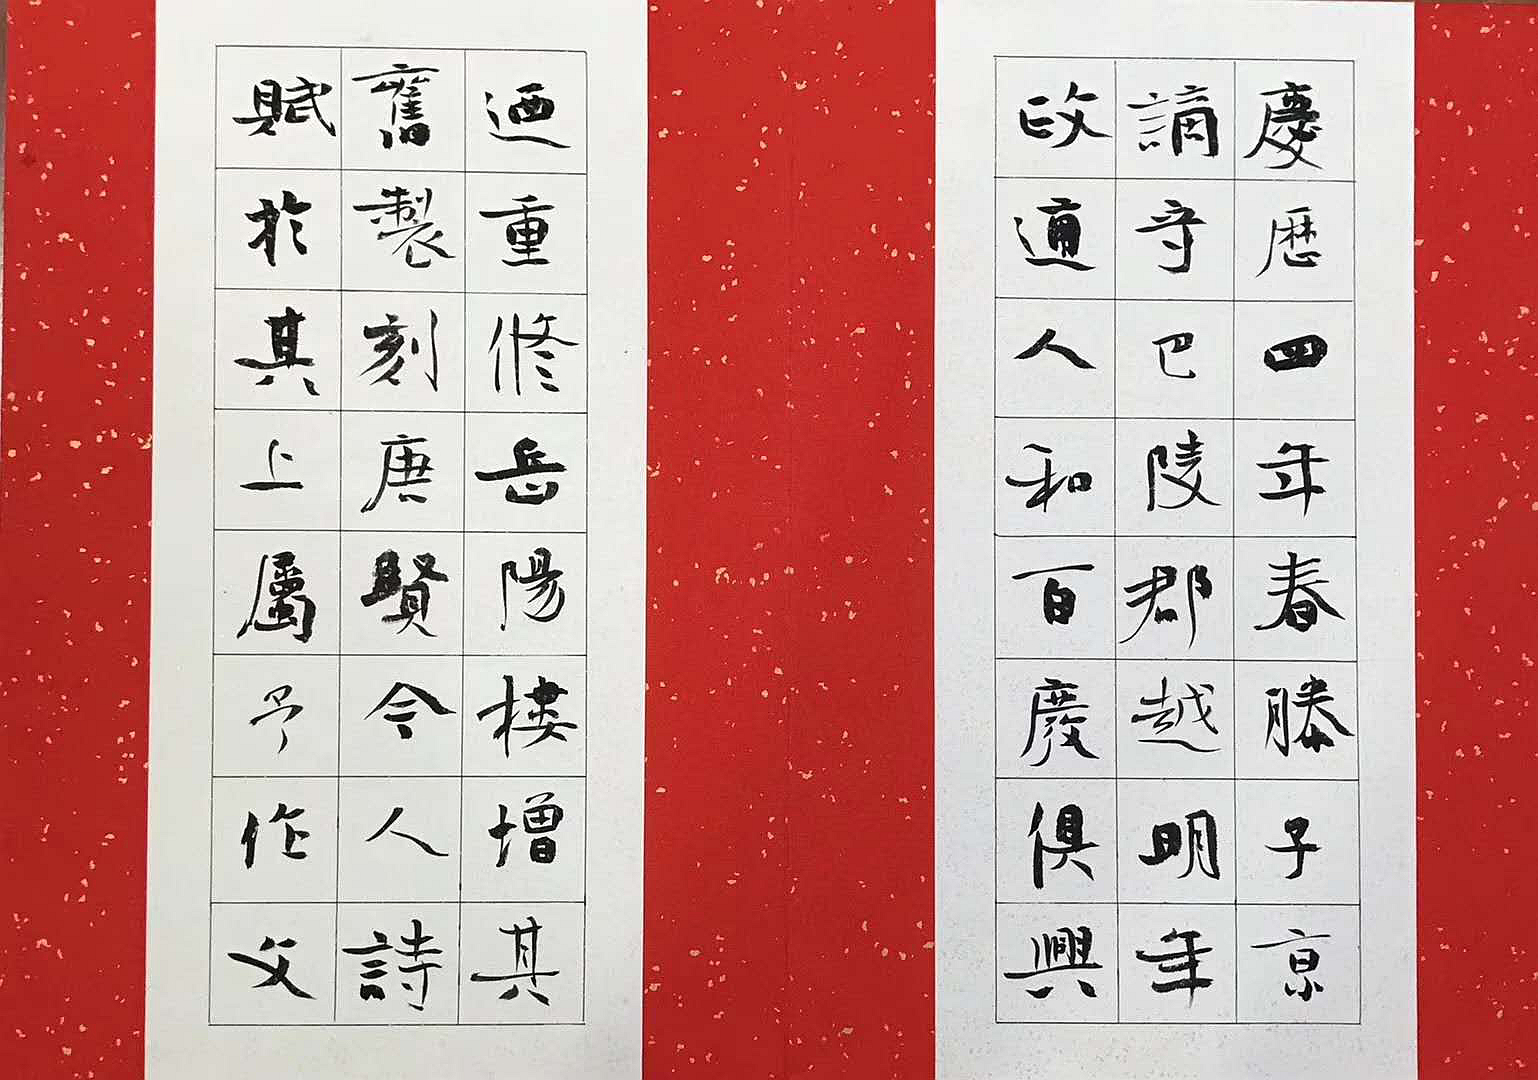 慶歴四年春滕子京
謫守巴陵郡越明年
政通人和百廢俱興
迺重修岳陽樓增其
舊製刻唐賢令人詩
賦於其上屬予作文